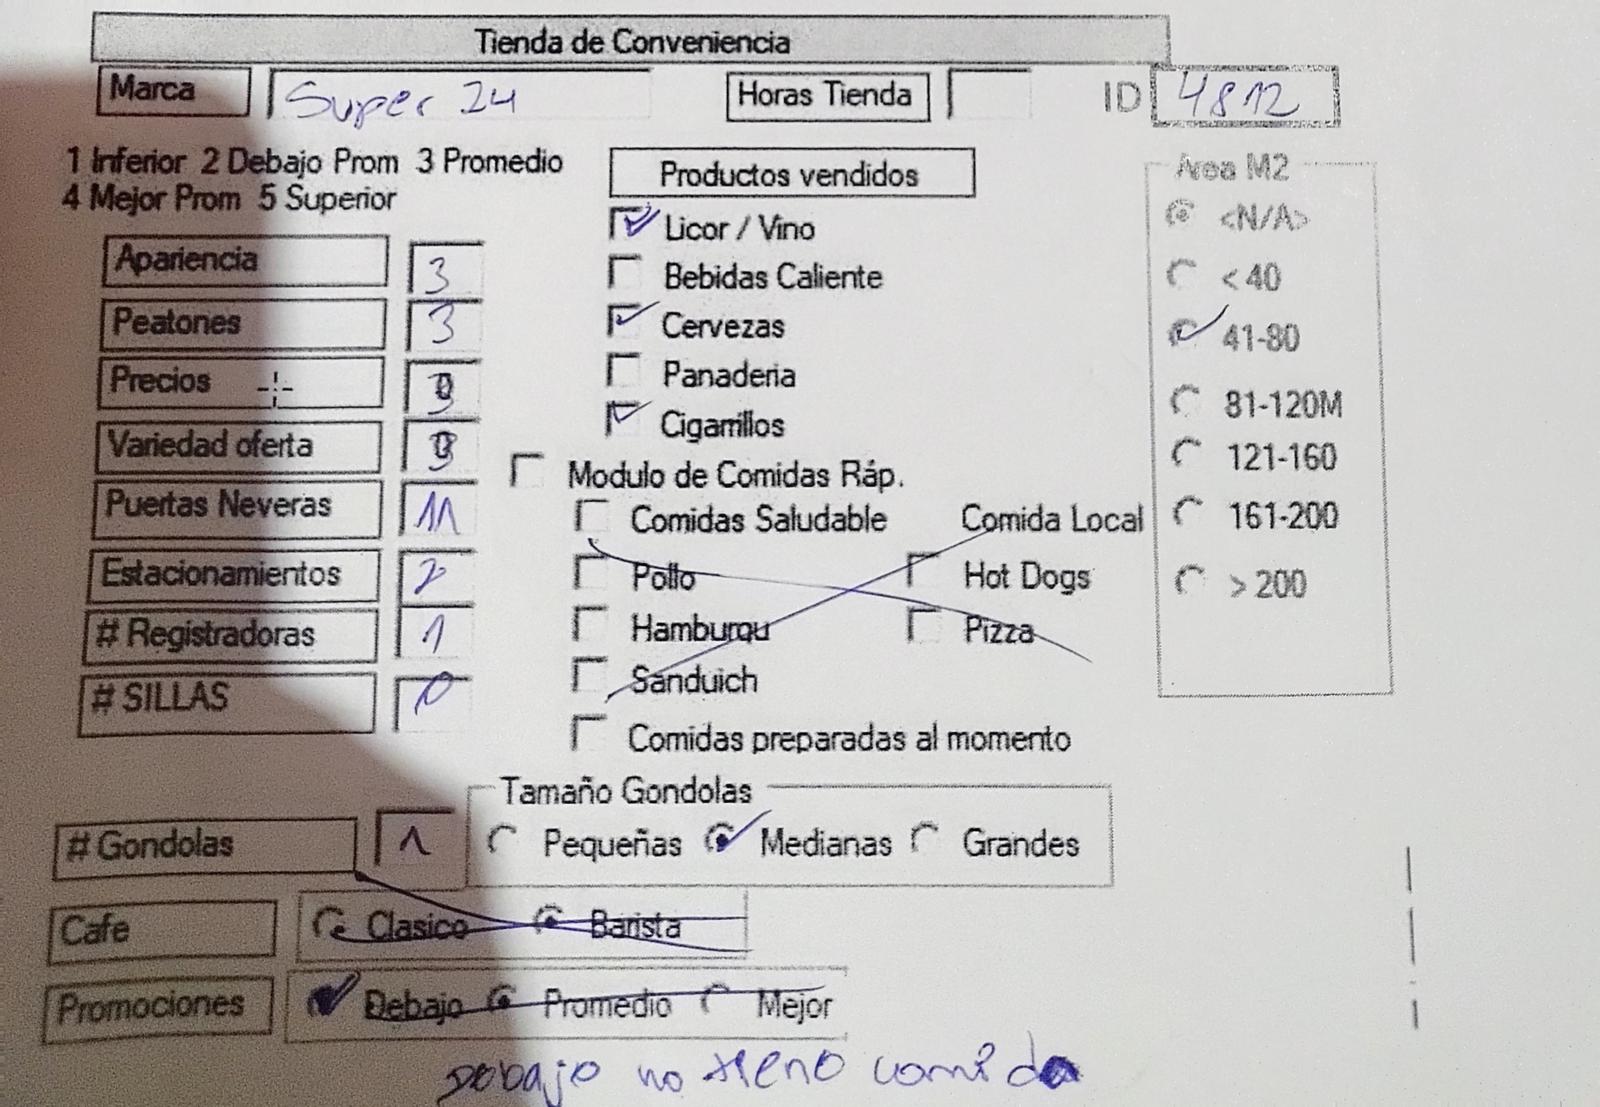 Tienda de Conveniencia
Marca Super 24 Horas Tienda ID 4812
1 Inferior 2 Debajo Prom 3 Promedio
4 Mejor Prom 5 Superior
Productos vendidos
Area M2
Licor / Vino
<N/A>
Apariencia 3
Bebidas Caliente
< 40
Peatones 3
Cervezas
41-80
Precios 3
Panaderia
81-120M
Variedad oferta 3
Cigarrillos
121-160
Puertas Neveras 11
Modulo de Comidas Ráp.
161-200
Comidas Saludable Comida Local
Estacionamientos 2
Pollo Hot Dogs
> 200
# Registradoras 1
Hamburqu Pizza
# SILLAS 0
Sanduich
Comidas preparadas al momento
Tamaño Gondolas
# Gondolas 1 Pequeñas Medianas Grandes
Cafe Clasico Barista
Promociones Debajo Promedio Mejor
Debajo no tieno comida